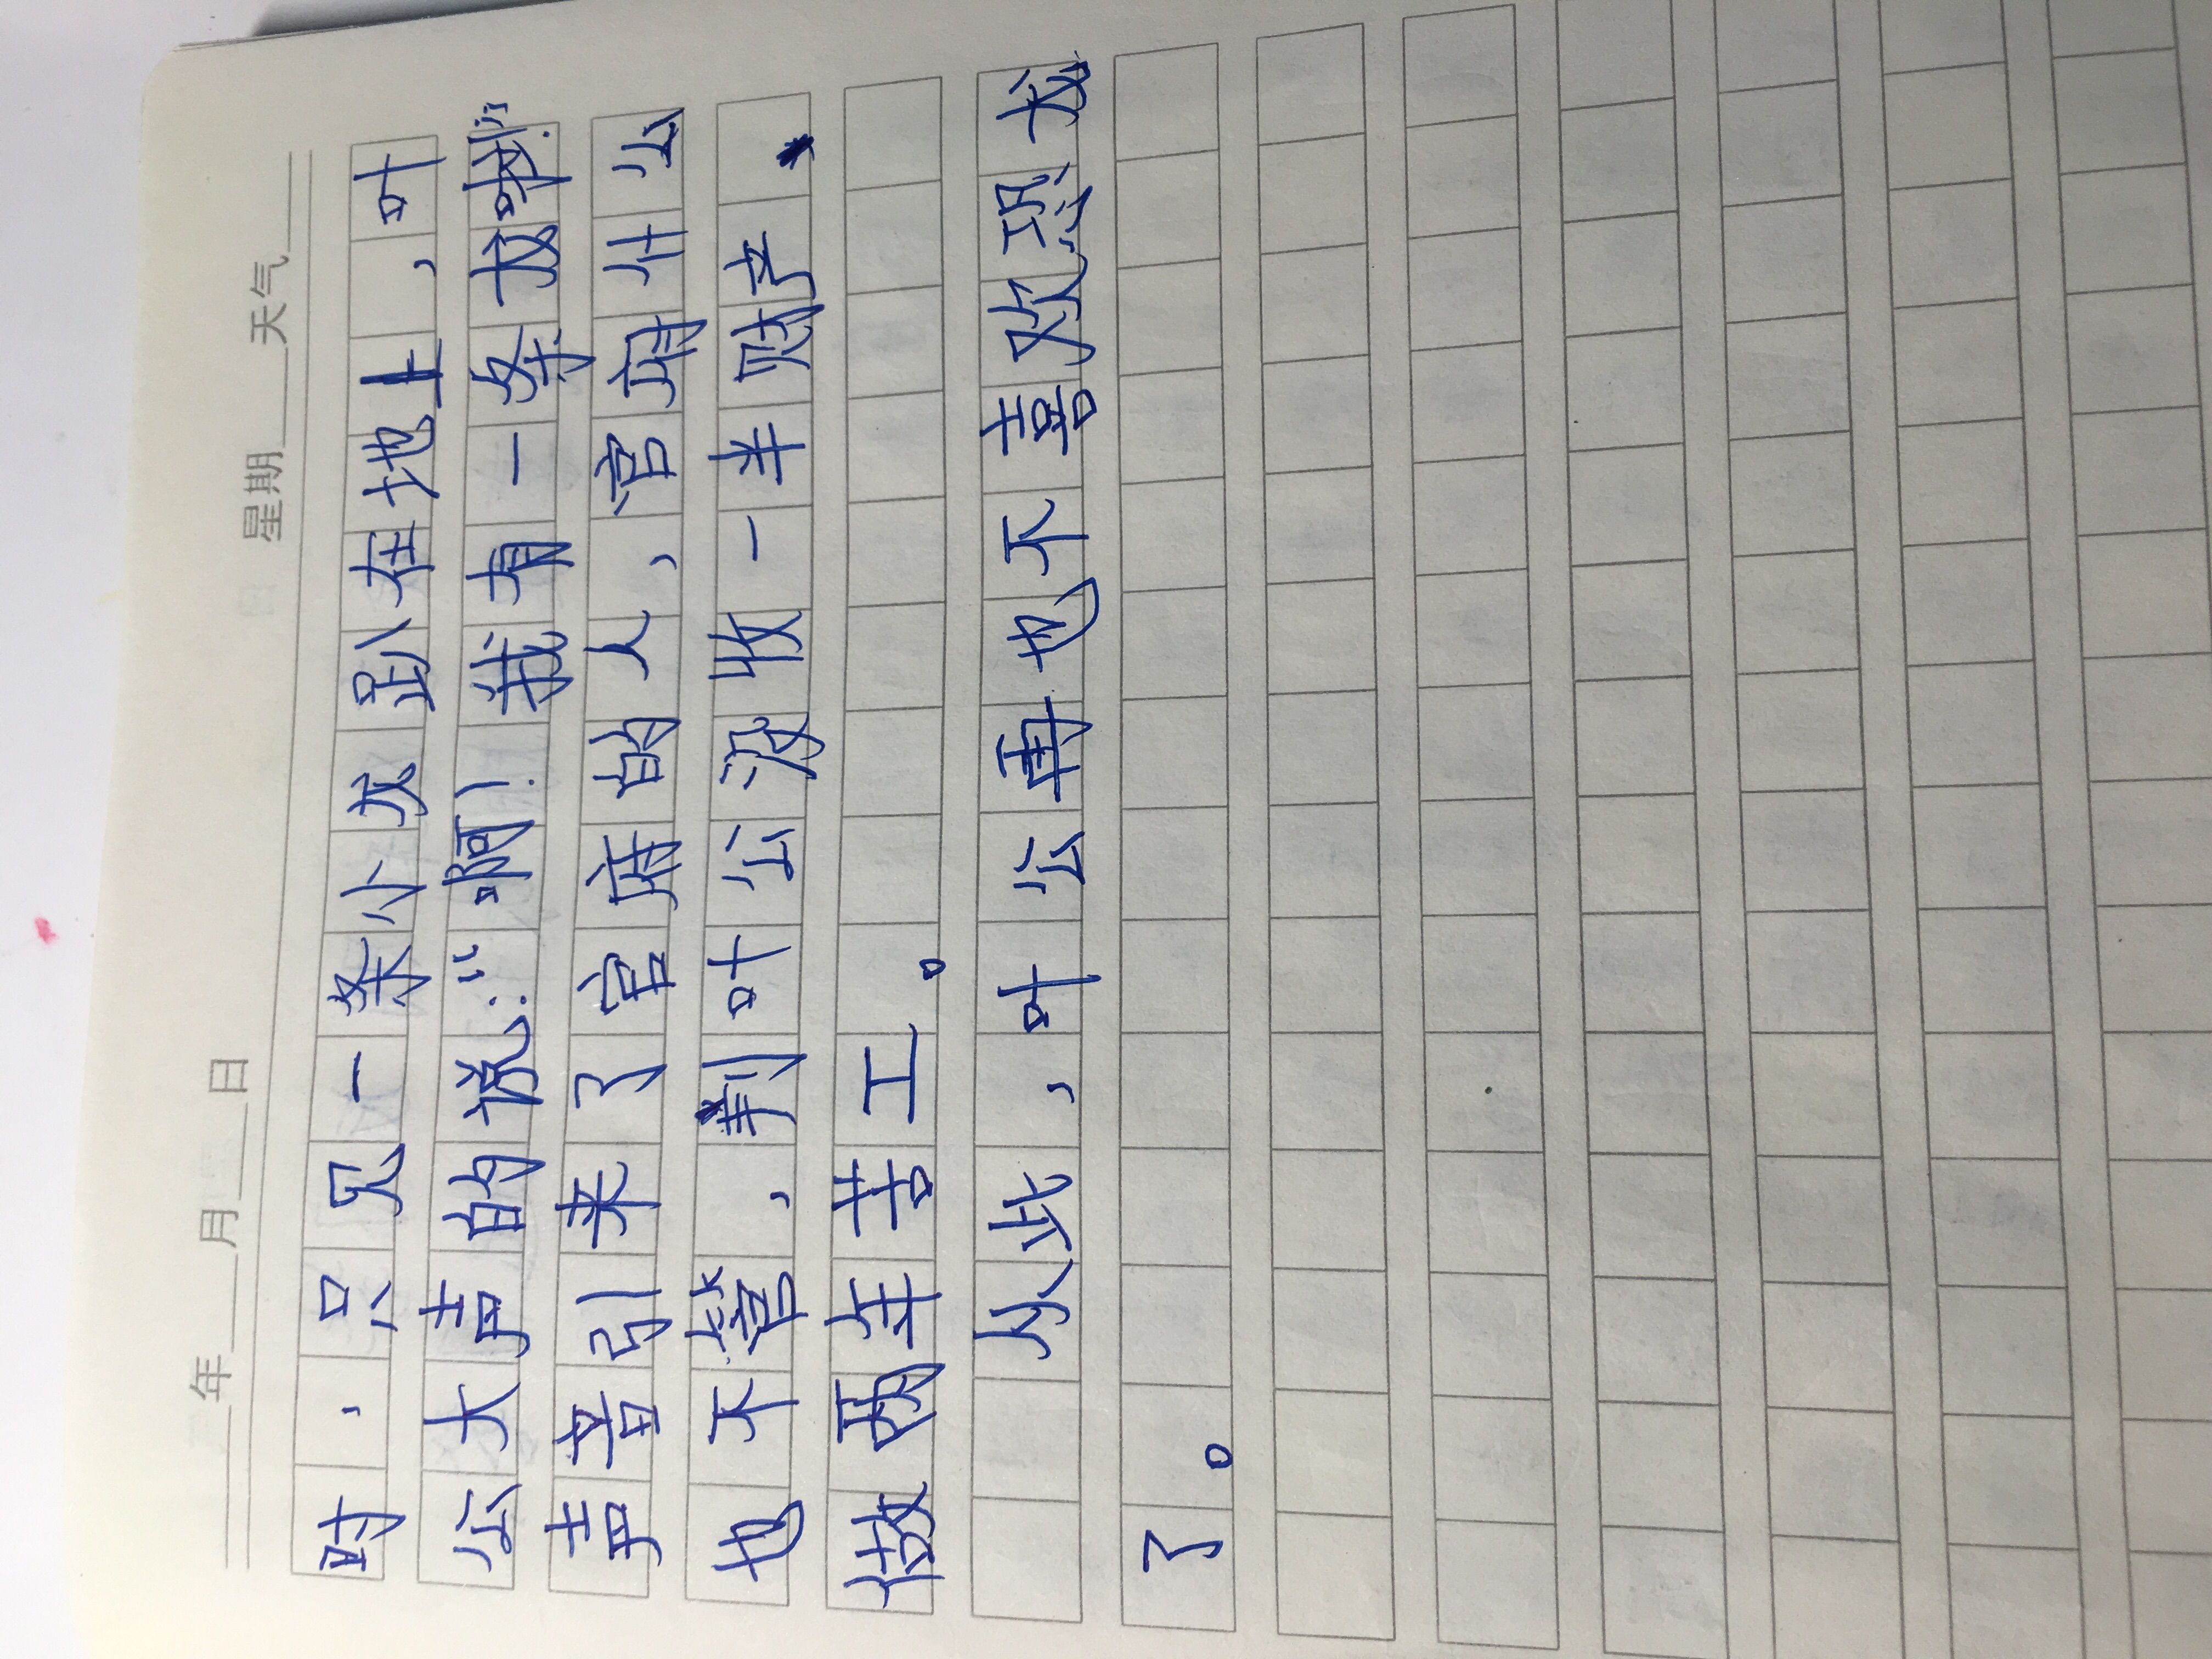 年 月 日 星期 天气
时，只见一条小龙趴在地上，叶
公大声的说：“啊！我有一条龙啦！”
声音引来了官府的人，官府什么
也不管，判叶公没收一半财产
做两年苦工。
从此，叶公再也不喜欢恐龙
了。